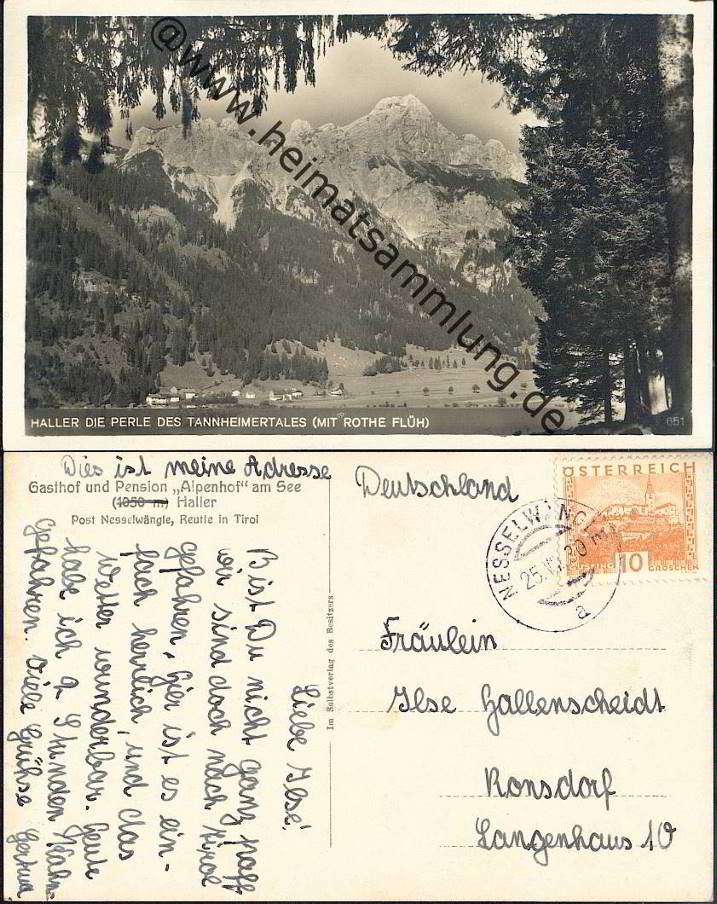 @www.heimatsammlung.de
HALLER DIE PERLE DES TANNHEIMERTALES (MIT ROTHE FLÜH)
651
Dies ist meine Adresse
Gasthof und Pension „Alpenhof“ am See
(1050 m) Haller
Post Nesselwängle, Reutte in Tirol
Liebe Ilse!
Bist Du nicht ganz paff
wir sind doch nach Tirol
gefahren, hier ist es ein-
fach herrlich, und das
Wetter wunderbar. Heute
habe ich 2 Stunden Kahn
gefahren. Viele Grühse Gertrud
Im Selbstverlag des Besitzers
Deutschland
ÖSTERREICH
10
GROSCHEN
NESSELWÄNGLE
a
Fräulein
Ilse Hallenscheidt
Ronsdorf
Langenhaus 10